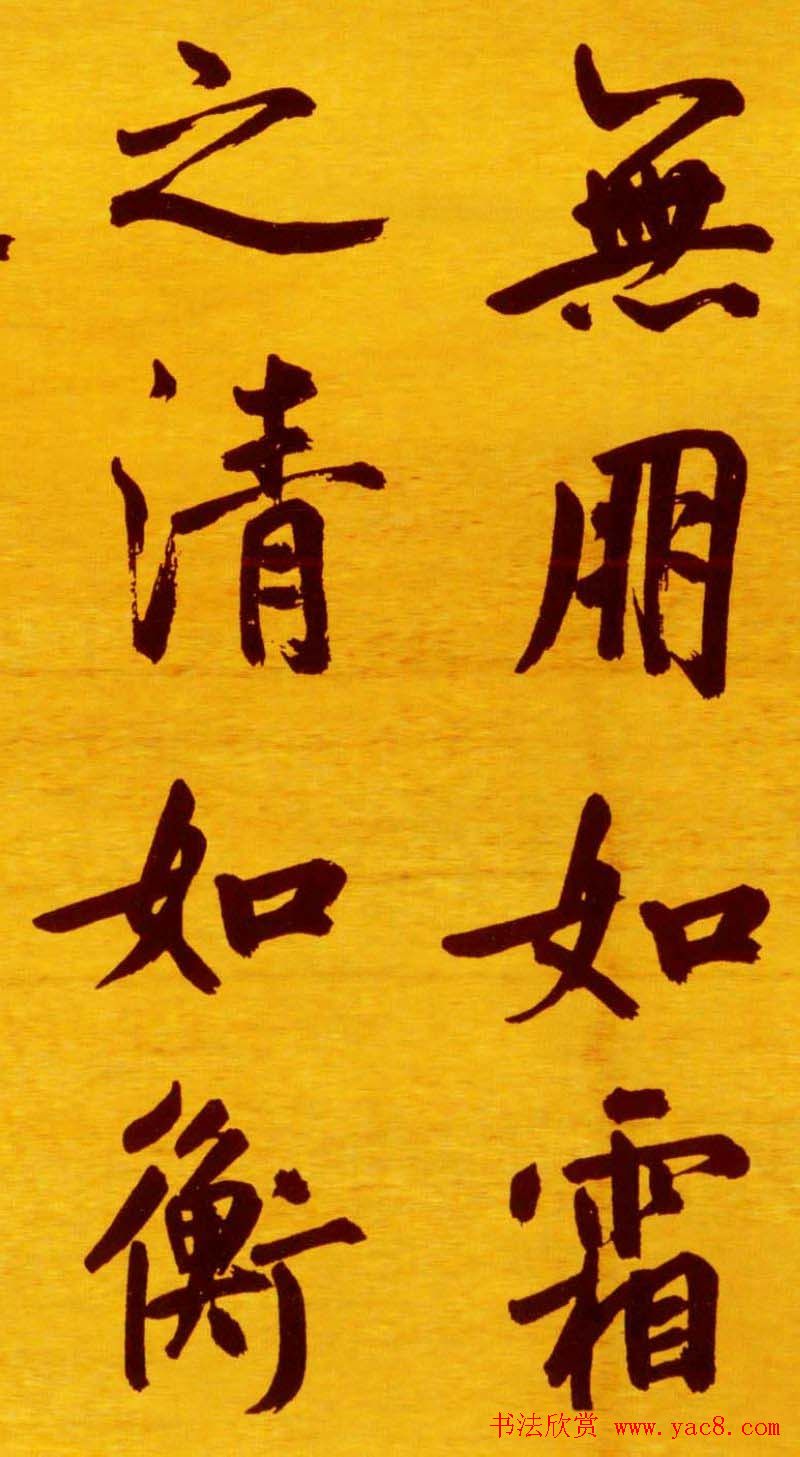 無朋如霜
之清如衡
书法欣赏 www.yac8.com